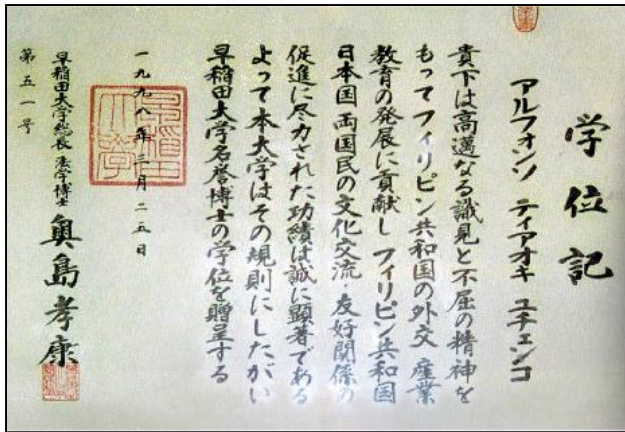 学位記
アルフォンソ ティアオキ ユチェンコ
貴下は高邁なる識見と不屈の精神を
もってフィリピン共和国の外交 産業
教育の発展に貢献し フィリピン共和国
日本国 両国民の文化交流・友好関係の
促進に尽力された功績は誠に顕著である
よって本大学はその規則にしたがい
早稲田大学名誉博士の学位を贈呈する
一九九八年三月二五日
早稲田大学総長 法学博士 奥島孝康
第五一号